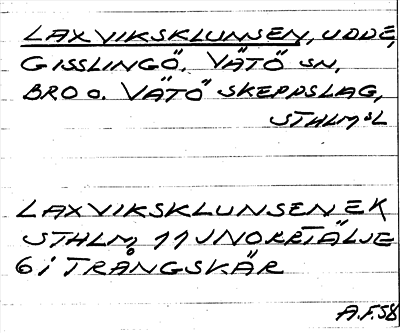 LAXVIKSKLUNSEN, UDDE,
GISSLINGÖ. VÄTÖ SN,
BRO O. VÄTÖ SKEPPSLAG,
STHLM:L
LAXVIKSKLUNSEN EK
STHLM 11 JNORRTÄLJE
6 i TRÅNGSKÄR
A.F.58